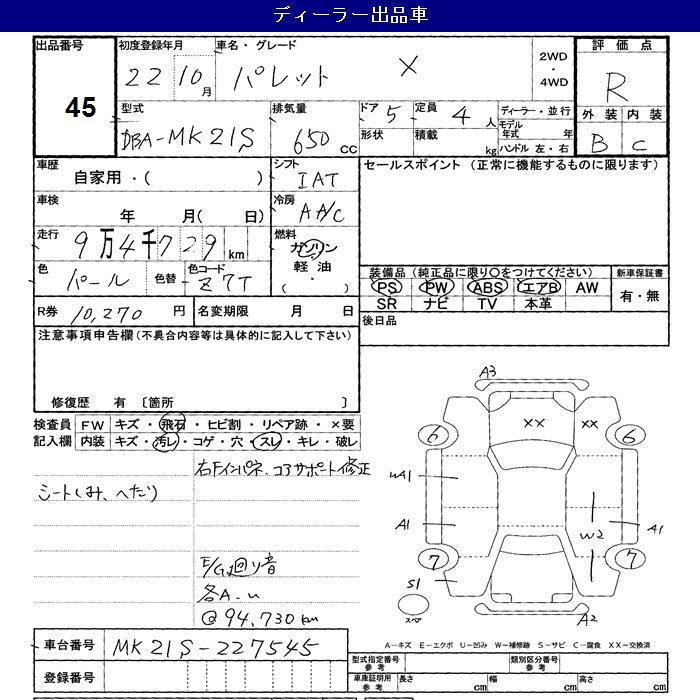 ディーラー出品車
出品番号
45
初度登録年月
22 10月
車名・グレード
パレット X
2WD・4WD
評価点
R
外装 内装
B C
型式
DBA-MK21S
排気量
650 cc
ドア 5
形状
定員 4 人
積載 kg
ディーラー・並行
モデル年式 年
ハンドル 左・右
車歴
自家用・( )
シフト
IAT
セールスポイント (正常に機能するものに限ります)
車検
年 月( 日)
冷房
AA/C
走行
9万4千729km
燃料
ガソリン
軽油
( ・ )
色
パール
色替
色コード
Z7T
装備品 (純正品に限り〇をつけてください)
新車保証書
PS PW ABS エアB AW
SR ナビ TV 本革
有・無
R券 10,270 円
名変期限 月 日
後日品
注意事項申告欄(不具合内容等は具体的に記入して下さい)
修復歴 有 〔箇所 〕
検査員 記入欄
FW キズ・飛石・ヒビ割・リペア跡・×要
内装 キズ・汚レ・コゲ・穴・スレ・キレ・破レ
右Fインパネ、コアサポート修正
シート(しみ、へたり)
E/G廻り音
各A.u
@94,730km
A3
XX XX
6 6
WA1
A1 A1
W2
7 7
S1
スペア
A2
A-キズ E-エクボ U-凹み W-補修跡 S-サビ C-腐食 XX-交換済
車台番号 MK21S-227545
登録番号
型式指定番号 参考
類別区分番号 参考
車庫証明用 参考
長さ cm 幅 cm 高さ cm